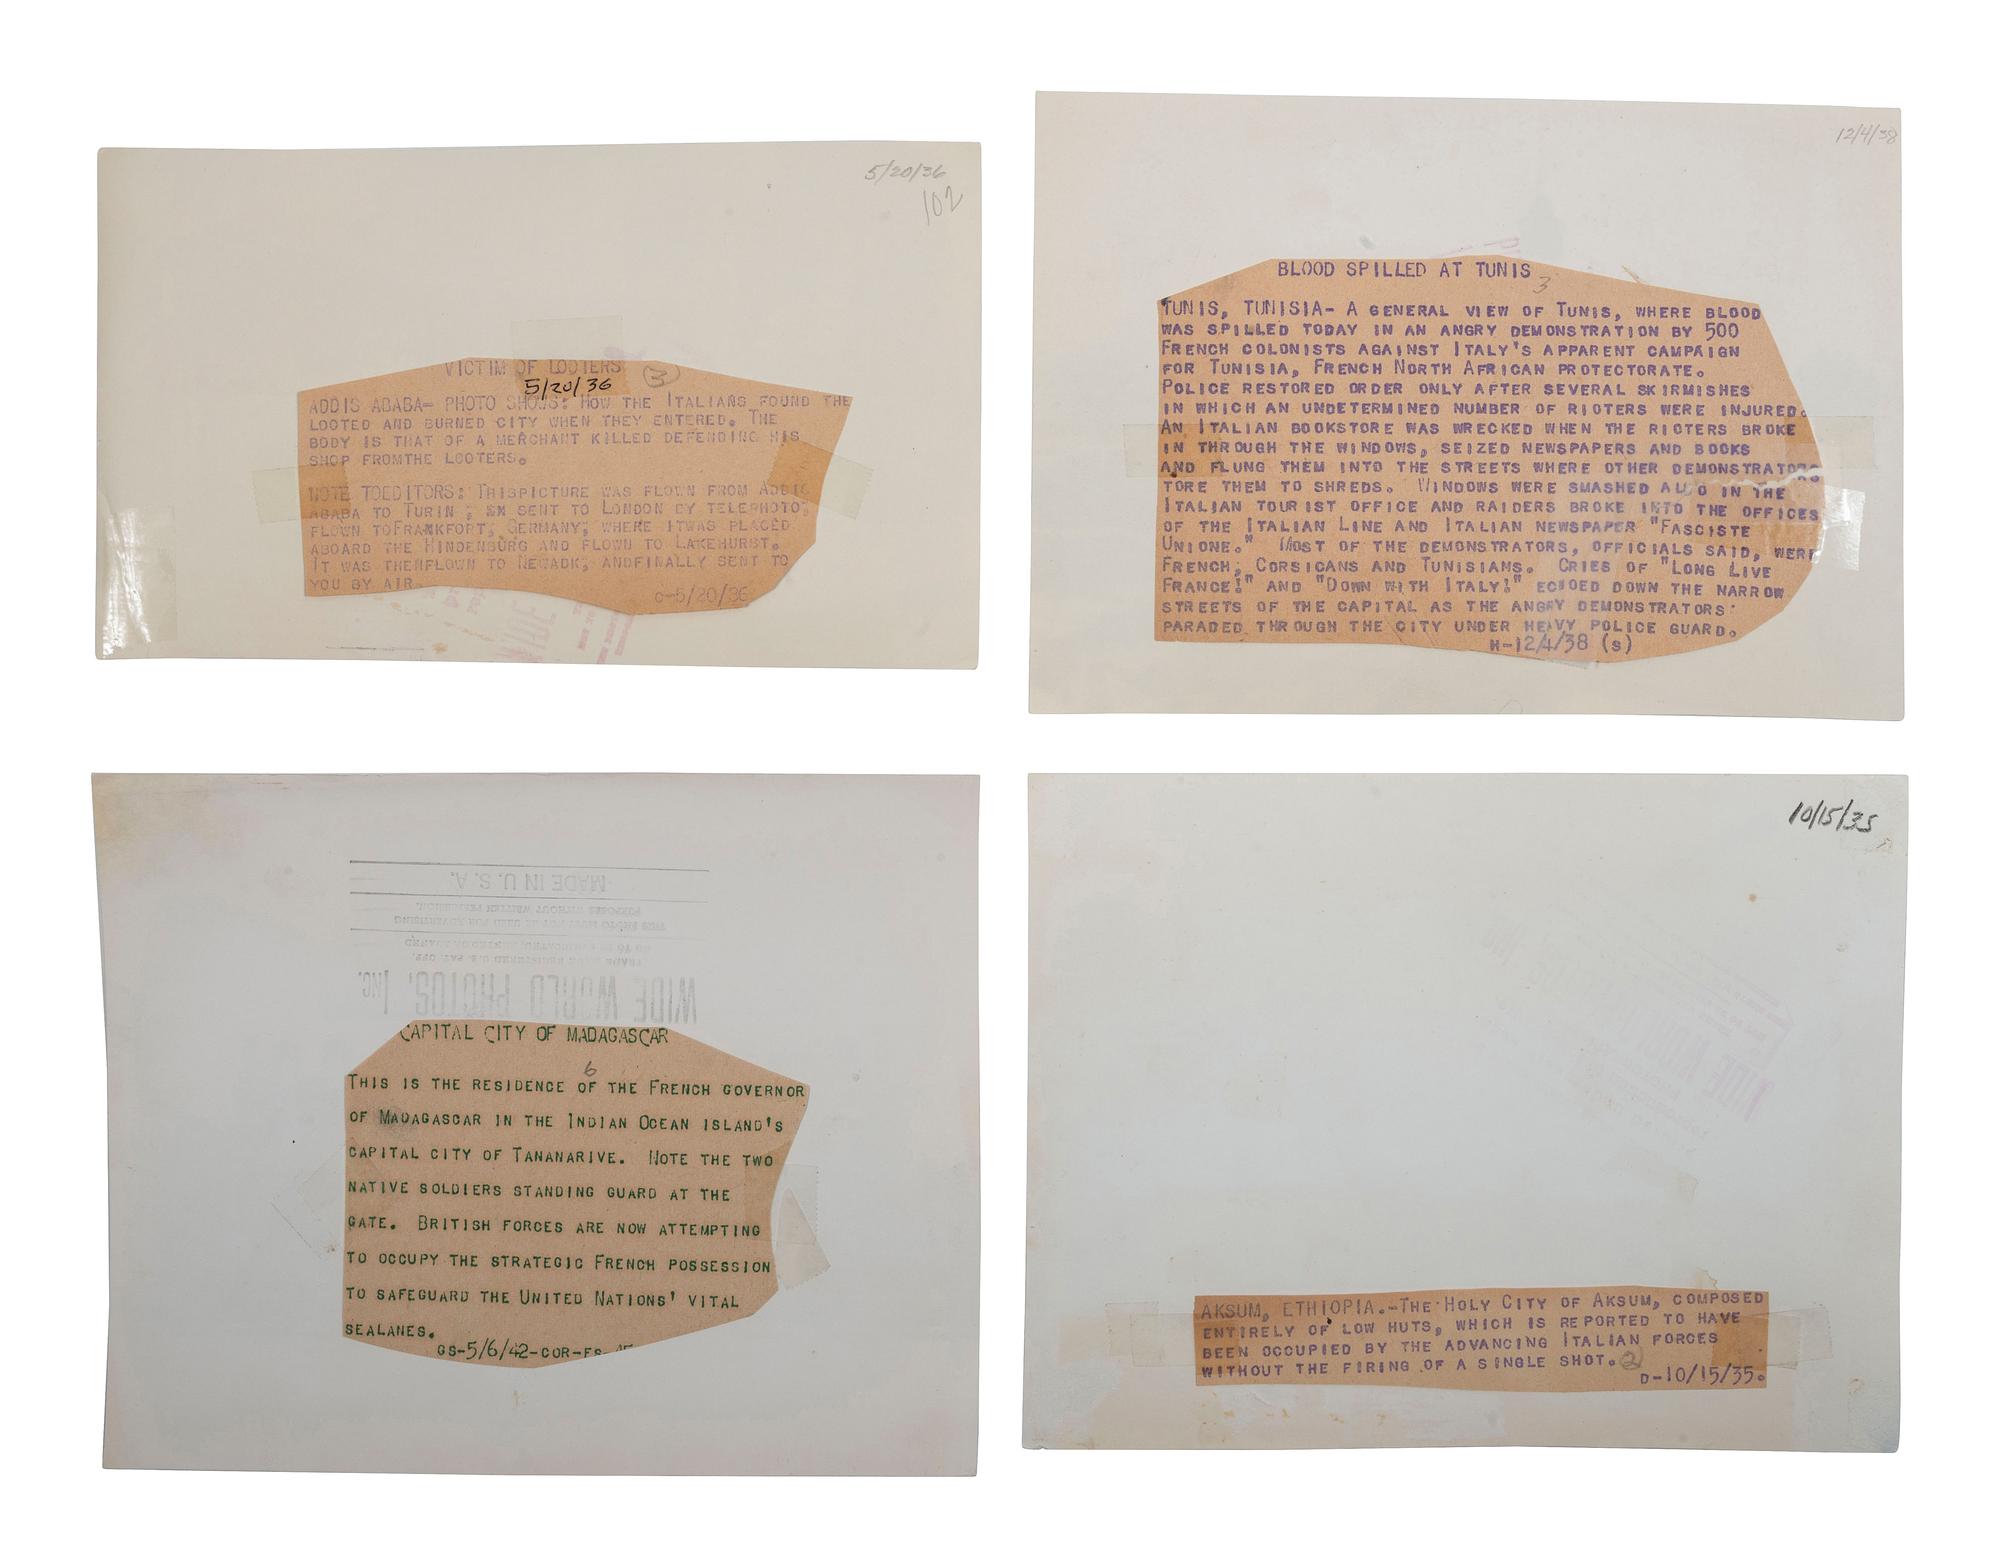 5/20/36
102
VICTIM OF LOOTERS
3
5/20/36
ADDIS ABABA- PHOTO SHOWS: HOW THE ITALIANS FOUND THE
LOOTED AND BURNED CITY WHEN THEY ENTERED. THE
BODY IS THAT OF A MERCHANT KILLED DEFENDING HIS
SHOP FROMTHE LOOTERS.
NOTE TOEDITORS: THISPICTURE WAS FLOWN FROM ADDIS
ABABA TO TURIN, SENT TO LONDON BY TELEPHOTO,
FLOWN TOFRANKFORT, GERMANY, WHERE ITWAS PLACED
ABOARD THE HINDENBURG AND FLOWN TO LAKEHURST.
IT WAS THENFLOWN TO NEWARK, ANDFINALLY SENT TO
YOU BY AIR.
C-5/20/36
WIDE
12/4/38
BLOOD SPILLED AT TUNIS
3
TUNIS, TUNISIA- A GENERAL VIEW OF TUNIS, WHERE BLOOD
WAS SPILLED TODAY IN AN ANGRY DEMONSTRATION BY 500
FRENCH COLONISTS AGAINST ITALY'S APPARENT CAMPAIGN
FOR TUNISIA, FRENCH NORTH AFRICAN PROTECTORATE.
POLICE RESTORED ORDER ONLY AFTER SEVERAL SKIRMISHES
IN WHICH AN UNDETERMINED NUMBER OF RIOTERS WERE INJURED.
AN ITALIAN BOOKSTORE WAS WRECKED WHEN THE RIOTERS BROKE
IN THROUGH THE WINDOWS, SEIZED NEWSPAPERS AND BOOKS
AND FLUNG THEM INTO THE STREETS WHERE OTHER DEMONSTRATORS
TORE THEM TO SHREDS. WINDOWS WERE SMASHED ALSO IN THE
ITALIAN TOURIST OFFICE AND RAIDERS BROKE INTO THE OFFICES
OF THE ITALIAN LINE AND ITALIAN NEWSPAPER "FASCISTE
UNIONE." MOST OF THE DEMONSTRATORS, OFFICIALS SAID, WERE
FRENCH, CORSICANS AND TUNISIANS. CRIES OF "LONG LIVE
FRANCE!" AND "DOWN WITH ITALY!" ECHOED DOWN THE NARROW
STREETS OF THE CAPITAL AS THE ANGRY DEMONSTRATORS
PARADED THROUGH THE CITY UNDER HEAVY POLICE GUARD.
H-12/4/38 (S)
MADE IN U. S. A.
PURPOSES WITHOUT WRITTEN PERMISSION.
THIS PHOTO MUST NOT BE USED FOR ADVERTISING
TRADE MARK REGISTERED U.S. PAT. OFF.
WIDE WORLD PHOTOS, INC.
CAPITAL CITY OF MADAGASCAR
6
THIS IS THE RESIDENCE OF THE FRENCH GOVERNOR
OF MADAGASCAR IN THE INDIAN OCEAN ISLAND'S
CAPITAL CITY OF TANANARIVE. NOTE THE TWO
NATIVE SOLDIERS STANDING GUARD AT THE
GATE. BRITISH FORCES ARE NOW ATTEMPTING
TO OCCUPY THE STRATEGIC FRENCH POSSESSION
TO SAFEGUARD THE UNITED NATIONS' VITAL
SEALANES.
GS-5/6/42-COR-FS
10/15/35
AKSUM, ETHIOPIA.-THE HOLY CITY OF AKSUM, COMPOSED
ENTIRELY OF LOW HUTS, WHICH IS REPORTED TO HAVE
BEEN OCCUPIED BY THE ADVANCING ITALIAN FORCES
WITHOUT THE FIRING OF A SINGLE SHOT. 2
D-10/15/35.